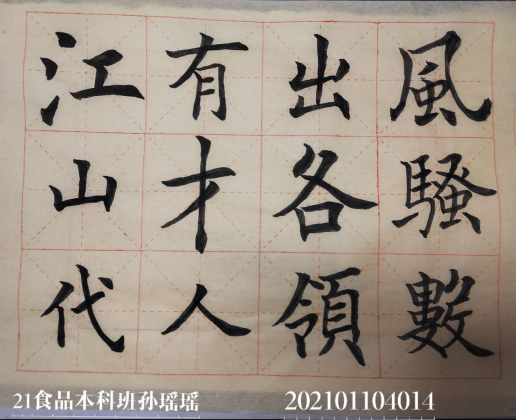 江山代
有才人
出各領
風騷數
21食品本科班孙瑶瑶
202101104014